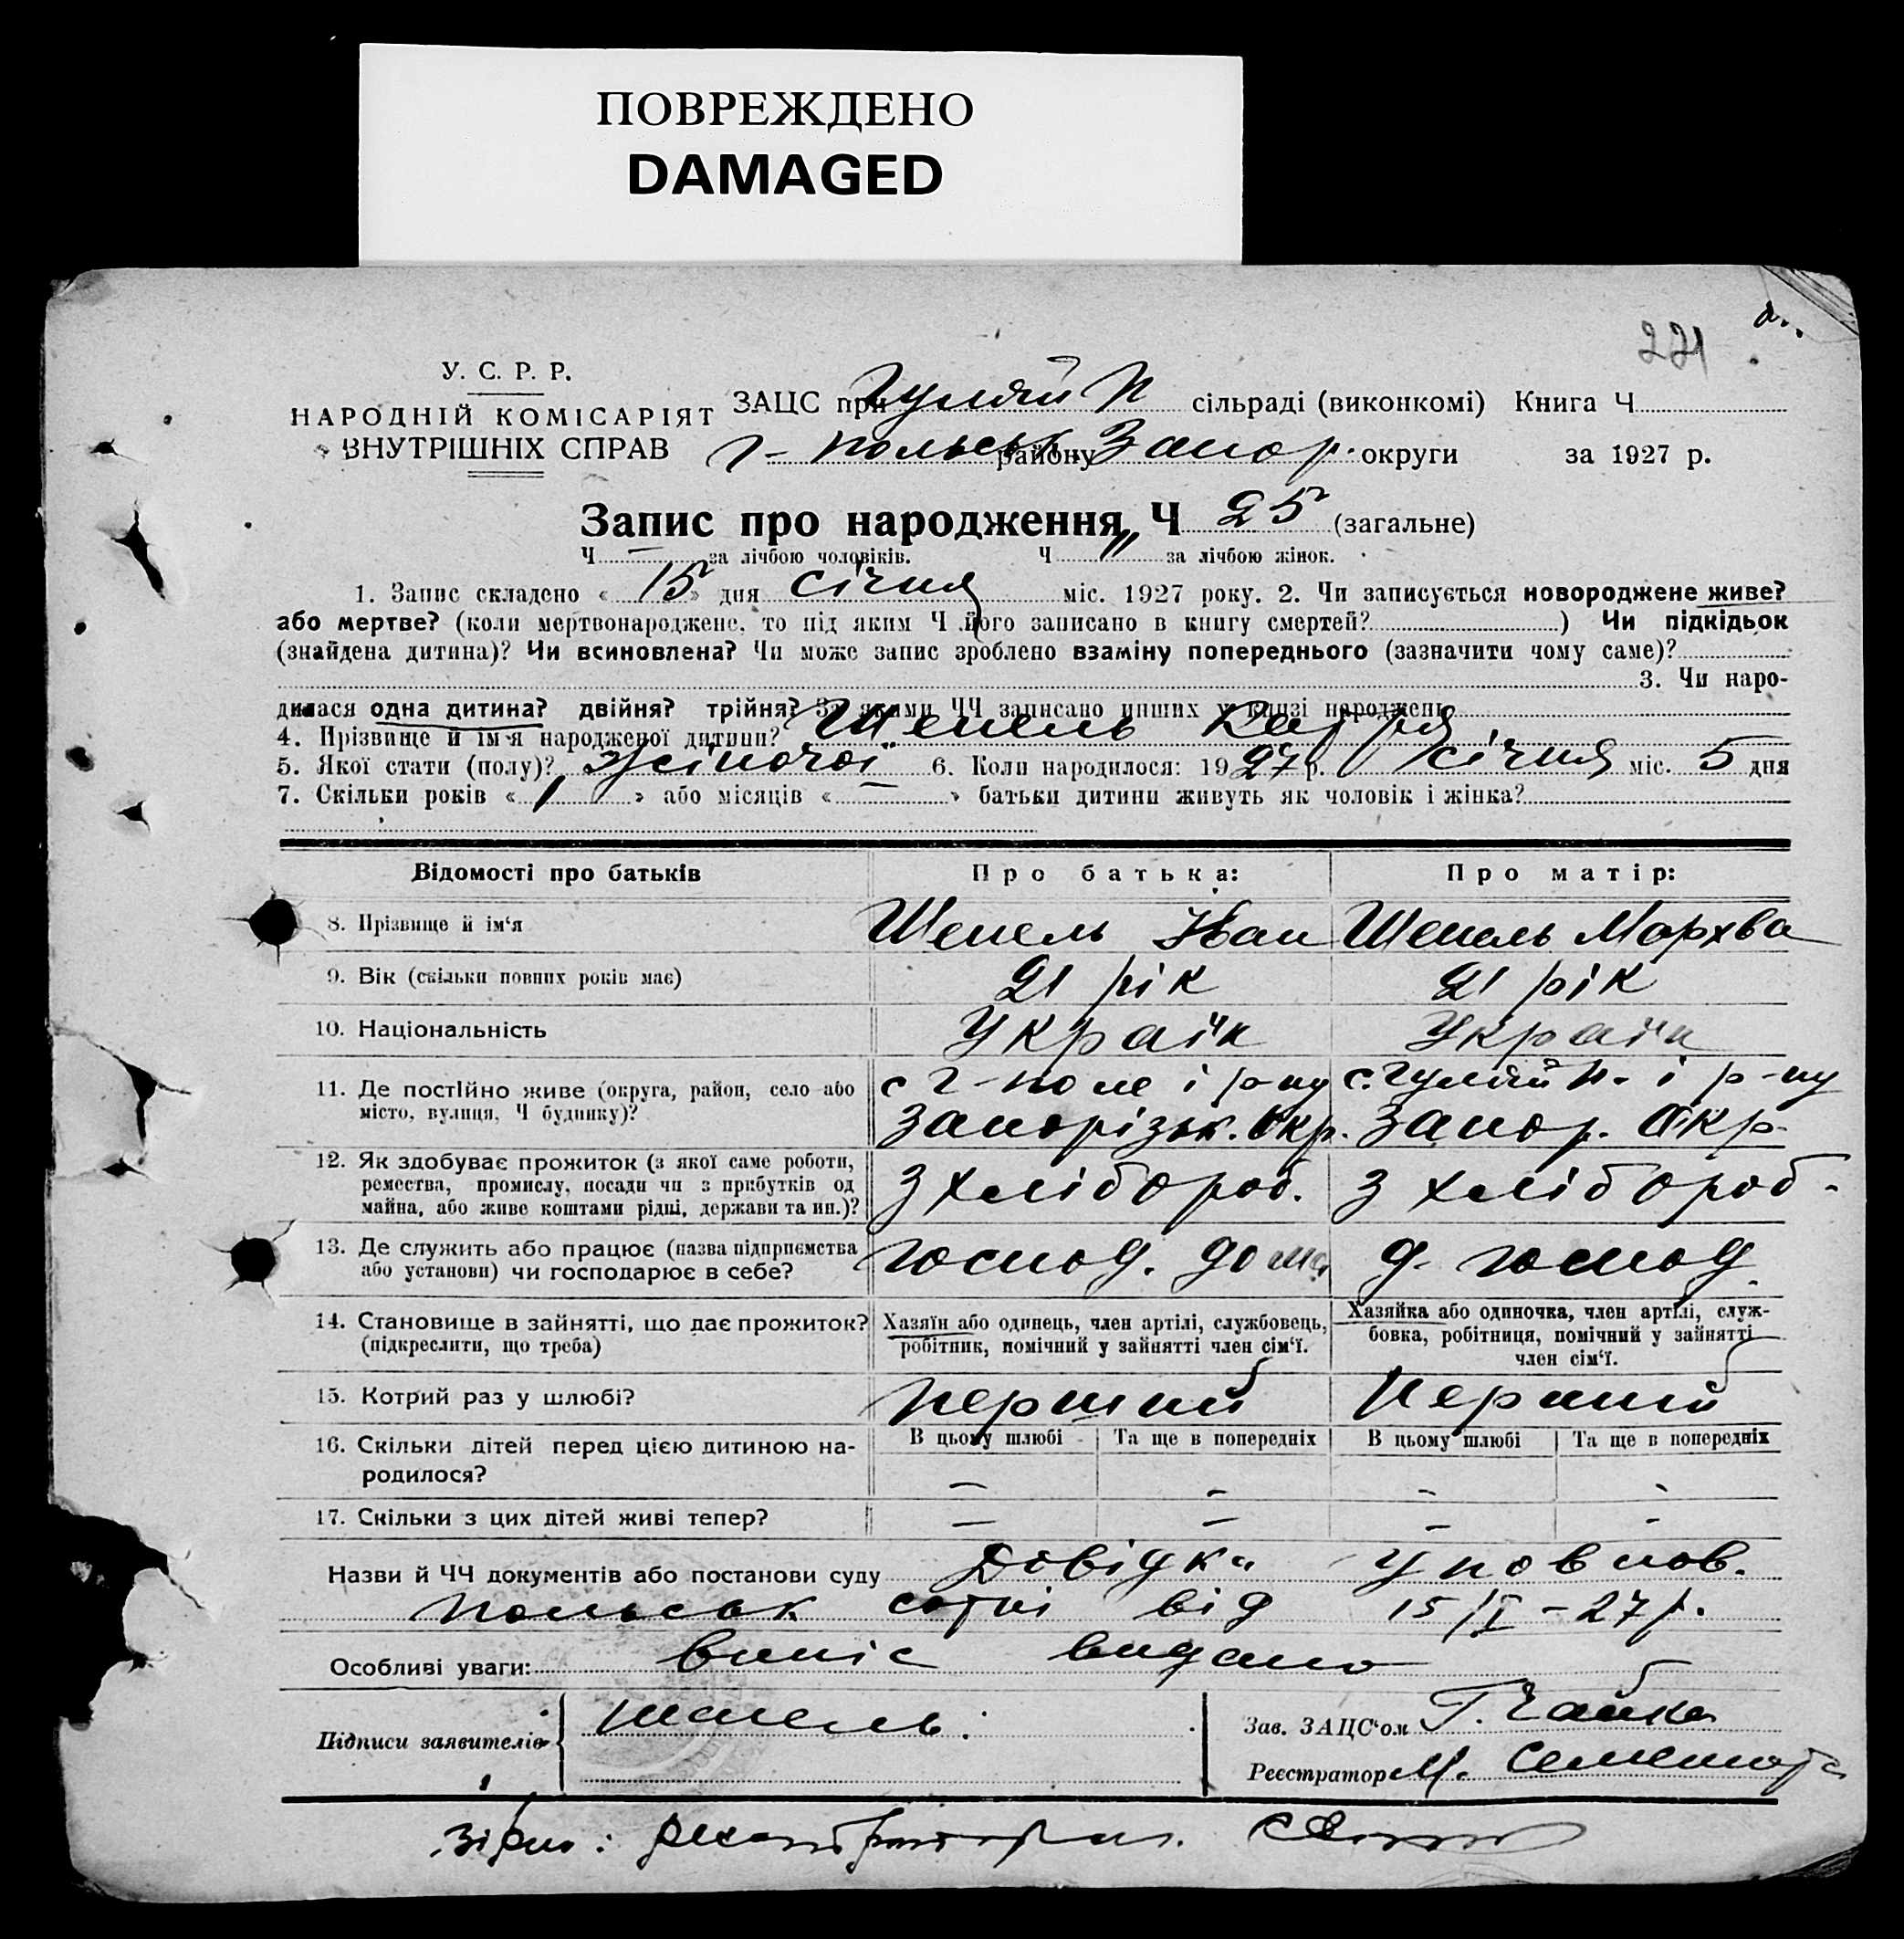 ПОВРЕЖДЕНО
DAMAGED
221
У. С. Р. Р.
НАРОДНІЙ КОМІСАРІЯТ
ВНУТРІШНІХ СПРАВ
ЗАЦС при Гуляй П сільраді (виконкомі) Книга Ч
Г-польськ району Запор. округи за 1927 р.
Запис про народження Ч 25 (загальне)
Ч — за лічбою чоловіків. Ч " за лічбою жінок.
1. Запис складено « 15 » дня січня міс. 1927 року. 2. Чи записується новороджене живе?
або мертве? (коли мертвонароджене, то під яким Ч його записано в книгу смертей? ) Чи підкідьок
(знайдена дитина)? Чи всиновлена? Чи може запис зроблено взаміну попереднього (зазначити чому саме)?
3. Чи наро-
дилася одна дитина? двійня? трійня? За якими ЧЧ записано инших у книзі народжень
4. Прізвище й ім'я народженої дитини? Шепель Дар'я
5. Якої стати (полу)? жіночої 6. Коли народилося: 1927 р. січня міс. 5 дня
7. Скільки років « 1 » або місяців « » батьки дитини живуть як чоловік і жінка?
Відомості про батьків Про батька: Про матір:
8. Прізвище й ім'я Шепель Іван Шепель Мархва
9. Вік (скільки повних років має) 21 рік 21 рік
10. Національність Україн Україн
11. Де постійно живе (округа, район, село або с Г-поле і р-ну с. Гуляй П. і р-ну
місто, вулиця, Ч будинку)? Запорізьк. Окр. Запор. Окр.
12. Як здобуває прожиток (з якої саме роботи,
ремества, промислу, посади чи з прибутків од З хлібороб. З хлібороб.
майна, або живе коштами рідні, держави та ин.)?
13. Де служить або працює (назва підприємства Господ. дома д. господ
або установи) чи господарює в себе?
14. Становище в зайнятті, що дає прожиток? Хазяїн або одинець, член артілі, службовець, Хазяйка або одиночка, член артілі, служ-
(підкреслити, що треба) робітник, помічний у зайнятті член сім'ї. бовка, робітниця, помічний у зайнятті
член сім'ї.
15. Котрий раз у шлюбі? перший перший
16. Скільки дітей перед цією дитиною на- В цьому шлюбі Та ще в попередніх В цьому шлюбі Та ще в попередніх
родилося? — — — —
17. Скільки з цих дітей живі тепер? — — — —
Назви й ЧЧ документів або постанови суду Довідка Уповнов.
польськ сотні від 15/I-27 р.
Особливі уваги: випіс видано
Підписи заявителів Шепель. Зав. ЗАЦС'ом Г. Чайка
Реєстратор М.
Зірно: